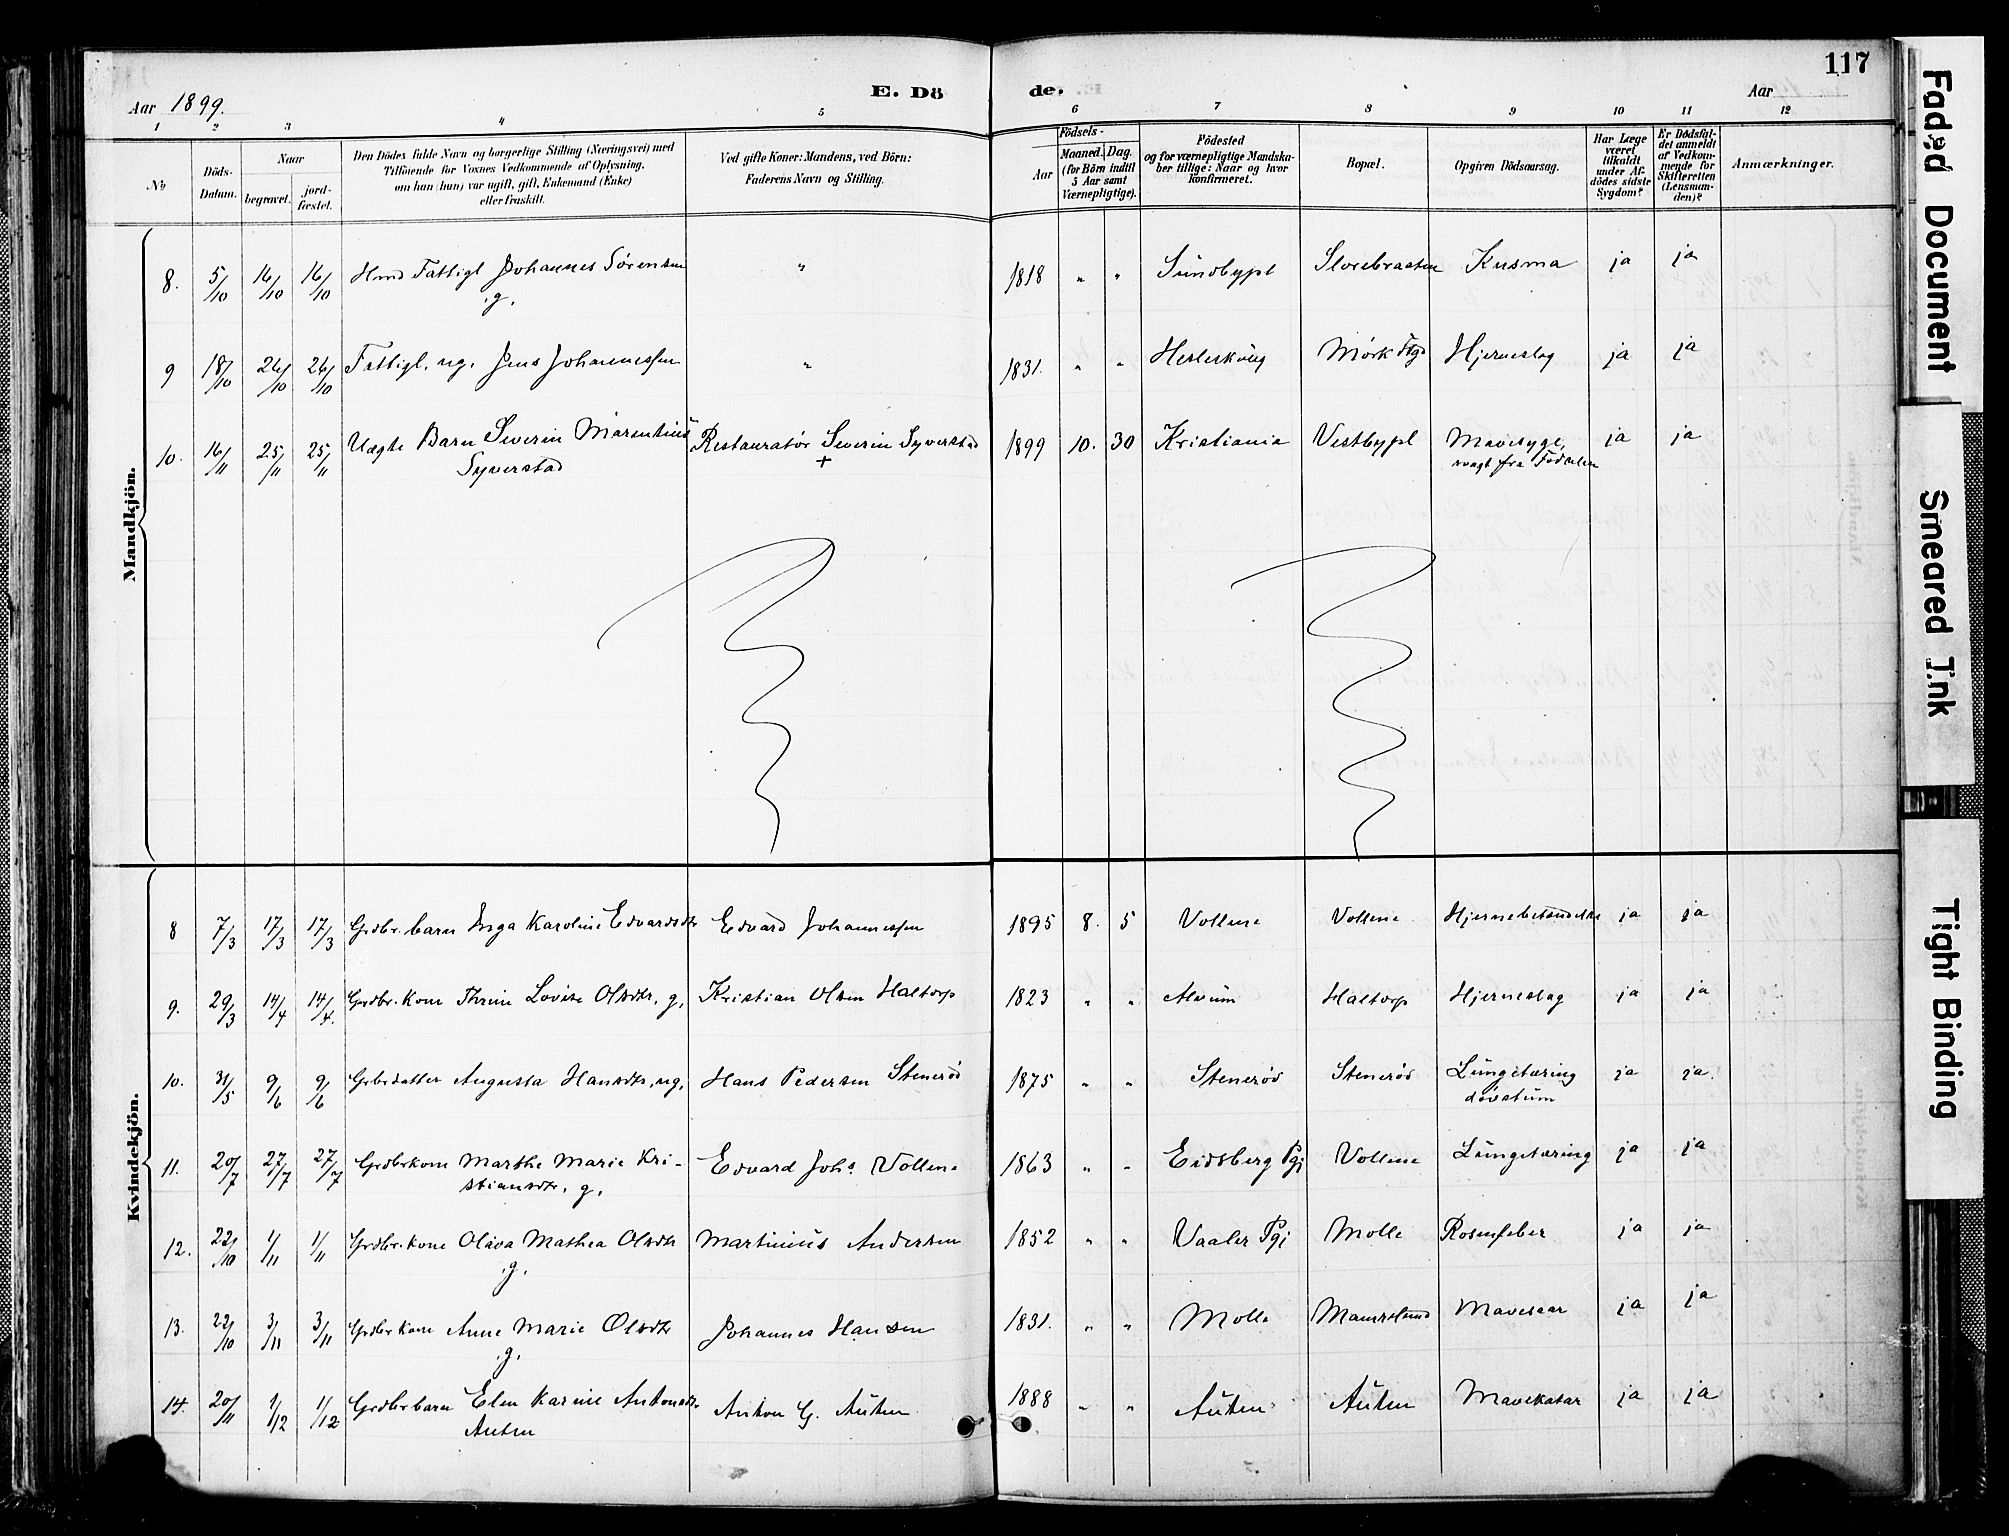 117
Aar 1899.
E. Dö
de.
Aar
1 2 3 4 5 6 7 8 9 10 11 12
No
Döds-
Datum.
Naar
begravet.
jord-
fæstet.
Den Dödes fulde Navn og borgerlige Stilling (Næringsvei) med
Tilföiende for Voxnes Vedkommende af Oplysning,
om han (hun) var ugift, gift, Enkemand (Enke)
eller fraskilt.
Ved gifte Koner: Mandens, ved Börn:
Faderens Navn og Stilling.
Födsels-
Aar
Maaned. Dag.
(for Börn indtil
5 Aar samt
Værnepligtige).
Födested
og for værnepligtige Mandska-
ber tillige: Naar og hvor
konfirmeret.
Bopæl.
Opgiven Dödsaarsag.
Har Læge
været
tilkaldt
under Af-
dödes sidste
Sygdom?
Er Dödsfal-
det anmeldt
af Vedkom-
mende for
Skifteretten
(Lensman-
den)?
Anmærkninger.
Mandkjön.
8. 5/10 16/10 16/10 Hmd Fattigl Johannes Sörensen " 1818 " " Sundbypl Slorebraaten Kusma ja ja
.g.
9 18/10 26/10 26/10 Fattigl. ug. Jens Johannessen " 1831. " " Herlerkoug Mörk Flgd Hjerneslag ja ja
10. 16/11 25/11 25/11 Uægte Barn Severin Marentius Restauratör Severin Syverstad 1899 10. 30 Kristiania Vestbypl Mavesyge, ja ja
Syverstad + svagt fra Födselen
Kvindekjön.
8 7/3 17/3 17/3 Grdbr. barn Inga Karoline Edvardsdtr Edvard Johannessen 1895 8. 5 Vollene Vollene Hjernebetændelse ja ja
9. 29/3 14/4 14/4. Grdbr. Kone Thrine Lovise Olsdtr, g, Kristian Olsen Haltorp 1823 " " Alvum Haltorp Hjerneslag ja ja
10. 31/5 9/6 9/6 Grbrdatter Augusta Hansdtr, ug, Hans Pedersen Steneröd 1875 " " Steneröd Steneröd Lungetæring ja ja.
dövstum
11. 20/7 27/7 27/7 Grdbrkone Marthe Marie Kri- Edvard Johs Vollene 1863 " " Eidsberg Pgj Vollene Lungetæring ja ja
stiansdtr, g,
12. 22/10 1/11 1/11 Grdbr. Kone Olava Mathea Olsdtr Martinius Andersen 1852 " " Vaaler Pgj Molle Rosenfeber ja ja
.g.
13. 22/10 3/11 3/11 Grdbr Kone Anne Marie Olsdtr Johannes Hansen 1831. " " Molle Maurslund Mavesaar ja ja
.g.
14. 20/11 1/12 1/12 Grdbr barn Elen Karine Antonsdtr. Anton G. Auten 1888 " " Auten Auten Mavekatar ja ja
Auten
Faded Document
Smeared Ink
Tight Binding